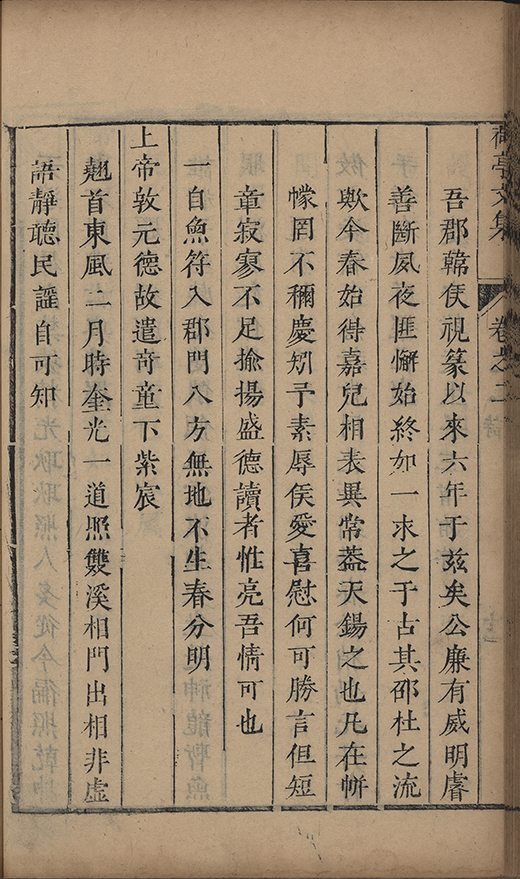 荷亭文集 卷之二
吾郡韓侯視篆以來六年于兹矣公廉有威明睿
善斷夙夜匪懈始終如一求之于古其邵杜之流
歟今春始得嘉兒相表異常葢天錫之也凡在帡
幪罔不穪慶矧予素辱侯愛喜慰何可勝言但短
章寂寥不足揄揚盛德讀者惟亮吾情可也
一自魚符入郡門八方無地不生春分明
上帝敦元德故遣竒童下紫宸
翹首東風二月時奎光一道照雙溪相門出相非虛
語靜聽民謡自可知